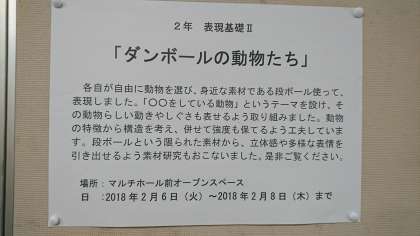 ２年　表現基礎Ⅱ
「ダンボールの動物たち」
各自が自由に動物を選び、身近な素材である段ボール使って、
表現しました。「〇〇をしている動物」というテーマを設け、そ
の動物らしい動きやしぐさも表せるよう取り組みました。動物
の特徴から構造を考え、併せて強度も保てるよう工夫していま
す。段ボールという限られた素材から、立体感や多様な表情を
引き出せるよう素材研究もおこないました。是非ご覧ください。
場所：マルチホール前オープンスペース
日　：2018年２月６日（火）～2018年２月８日（木）まで